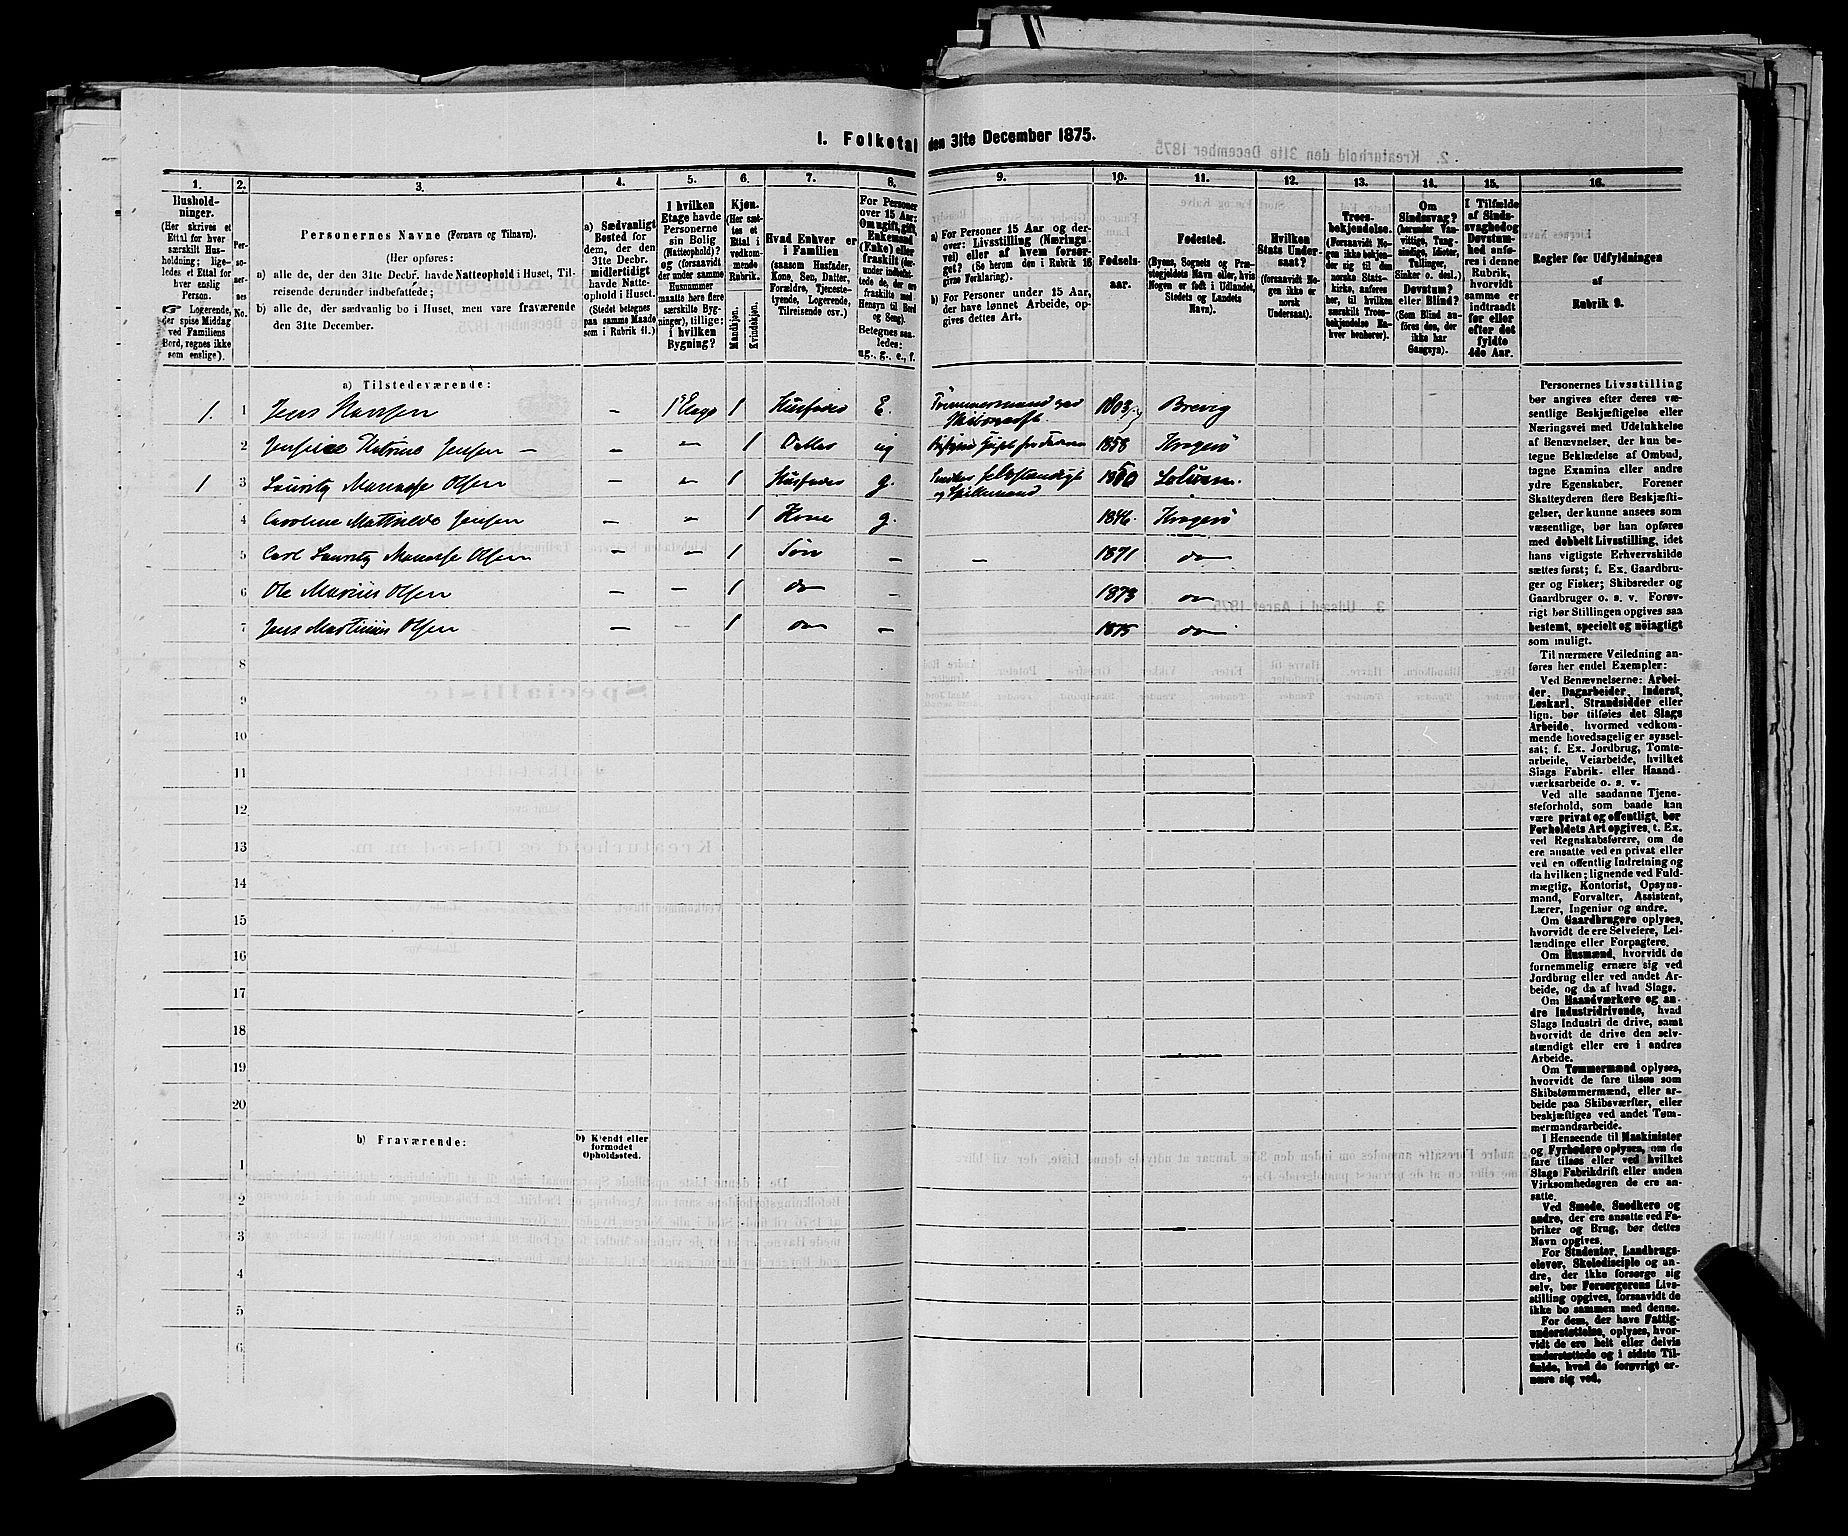 1. Folketal den 31te December 1875.
1. 2. 3. 4. 5. 6. 7. 8. 9. 10. 11. 12. 13. 14. 15. 16.
Husholdninger.
(Her skrives et
Ettal for hver
særskilt Husholdning;
ligeledes et Ettal for
hver enslig
Person.
Logerende,
der spise Middag
ved Familiens
Bord, regnes ikke
som enslige).
Personernes No.
Personernes Navne (Fornavn og Tilnavn).
(Her opføres:
a) alle de, der den 31te Decbr. havde Natteophold i Huset, Tilreisende derunder indbefattede;
b) alle de, der sædvanlig bo i Huset, men vare fraværende
den 31te December.
a) Sædvanligt
Bosted for
dem, der den
31te Decbr.
midlertidigt
havde Natteophold i Huset.
(Stedet betegnes
paa samme Maade
som i Rubrik 11.)
I hvilken
Etage havde
Personerne
sin Bolig
(Natteophold)?
(forsaavidt
der under samme
Husnummer
maatte høre flere
særskilte Bygninger), tillige:
i hvilken
Bygning?
Kjøn.
(Her sættes et
Ettal i
vedkommende
Rubrik.
Mandkjøn.
Kvindekjøn.
Hvad Enhver er
i Familien
(saasom Husfader,
Kone, Søn, Datter,
Forældre, Tjenestetyende, Logerende,
Tilreisende osv.)
For Personer
over 15 Aar:
Om ugift, gift,
Enkemand
(Enke) eller
fraskilt
(derunder indbefattede de, der ere
fraskilte med
Hensyn til Bord
og Seng).
Betegnes saaledes:
ug., g., e., f.
a) For Personer 15 Aar og derover: Livsstilling (Næringsvei) eller af hvem forsørget? (Se herom den i Rubrik 16
givne Forklaring).
b) For Personer under 15 Aar,
der have lønnet Arbeide, opgives dettes Art.
Fødselsaar.
Fødested.
(Byens, Sognets og Præstegjeldets Navn eller, hvis
Nogen er født i Udlandet,
Stedets og Landets
Navn).
Hvilken
Stats Undersaat?
(forsaavidt Nogen ikke er
norsk
Undersaat).
Troesbekjendelse.
(Forsaavidt Nogen ikke bekjender sig til den
norske Statskirke, anføres
her, til hvilken
særskilt Troesbekjendelse Enhver henhører).
Om
Sindssvag?
(herunder Vanvittige, Tungsindige, Idioter,
Tullinger,
Sinker o. desl.)
Døvstum?
eller Blind?
(Som Blind anføres den, der
ikke har
Gangsyn).
I Tilfælde
af Sindssvaghed og
Døvstumhed anføres i denne
Rubrik,
hvorvidt
samme er
indtraadt
før eller
efter det
fyldte
4de Aar.
Regler for Udfyldningen
af
Rubrik 9.
a) Tilstedeværende:
1. 1 Jens Hansen – 1ste Etage 1 Husfader E. Tømmermand ved 1803 Brevig
2 Jensine Katrine Jensen – – " 1 Datter ug 1858 Kragerø
1 3 Lauritz Manasse Olsen – " 1 Husfader g. 1850
og Spillemand
4 Caroline Mathilde Jensen – " 1 Kone g. 1846. Kragerø
5 Carl Lauritz Manasse Olsen – – 1 Søn – – 1871 do
6 Ole Marius Olsen – – 1 do – 1873 do
7 Jens Martinius Olsen – – 1 do – 1875 do
8
9
10
11
12
13
14
15
16
17
18
19
20
b) Fraværende:
b) Kjendt eller
formodet
Opholdssted.
1
2
3
4
5
6
Personernes Livsstilling
bør angives efter deres væsentlige Beskjæftigelse eller
Næringsvei med Udelukkelse
af Benævnelser, der kun betegne Beklædelse af Ombud,
tagne Examina eller andre
ydre Egenskaber. Forener
Skatteyderen flere Beskjæftigelser, der kunne ansees som
væsentlige, bør han opføres
med dobbelt Livsstilling, idet
hans vigtigste Erhvervskilde
sættes først; f. Ex. Gaardbruger og Fisker; Skibsreder og
Gaardbruger o. s. v. Forøvrigt bør Stillingen opgives saa
bestemt, specielt og nøiagtigt
som muligt.
Til nærmere Veiledning anføres her endel Exempler:
Ved Benævnelserne: Arbeider, Dagarbeider, Inderst,
Løskarl, Strandsidder eller
lign. bør tilføies det Slags
Arbeide, hvormed vedkommende hovedsagelig er sysselsat; f. Ex. Jordbrug, Tomtearbeide, Veiarbeide, hvilket
Slags Fabrik- eller Haandværksarbeide o. s. v.
Ved alle saadanne Tjenesteforhold, som baade kan
være privat og offentligt, bør
Forholdets Art opgives, t. Ex.
ved Regnskabsførere, om de
ere ansatte ved en privat eller
ved en offentlig Indretning og
da hvilken; lignende ved Fuldmægtig, Kontorist, Opsynsmand, Forvalter, Assistent,
Lærer, Ingeniør og andre.
Om Gaardbrugere oplyses,
hvorvidt de ere Selveiere, Leilændinge eller Forpagtere.
Om Husmænd, hvorvidt de
fornemmelig ernære sig ved
Jordbrug eller ved andet Arbeide, og da af hvad Slags.
Om Haandværkere og andre Industridrivende, hvad
Slags Industri de drive, samt
hvorvidt de drive den selvstændigt eller ere i andres
Arbeide.
Om Tømmermænd oplyses,
hvorvidt de fare tilsøs som
Skibstømmermænd, eller arbeide paa Skibsværfter, eller
beskjæftiges ved andet Tømmermandsarbeide.
I Henseende til Maskinister
og Fyrbødere oplyses, om de
fare tilsøs eller ved hvilket
Slags Fabrikdrift eller anden
Virksomhedsgren de ere ansatte.
Ved Smede, Snedkere og
andre, der ere ansatte ved Fabriker og Brug, bør dettes
Navn opgives.
For Studenter, Landbrugselever, Skoledisciple og andre, der ikke forsørge sig
selv, bør Forsørgerens Livsstilling opgives, forsaavidt de
ikke bo sammen med denne.
For dem, der have Fattigunderstøttelse, oplyses, hvorvidt de ere helt eller delvis
understøttede og i sidste Tilfælde, hvad de forøvrigt ernære sig ved.